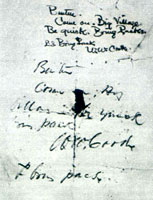 Benteen.
Come on. Big Village
Be quick. Bring Packs
P.S. Bring Packs
W.W. Cooke
Come on Big
be quick
pacs
W W Cooke
pacs.